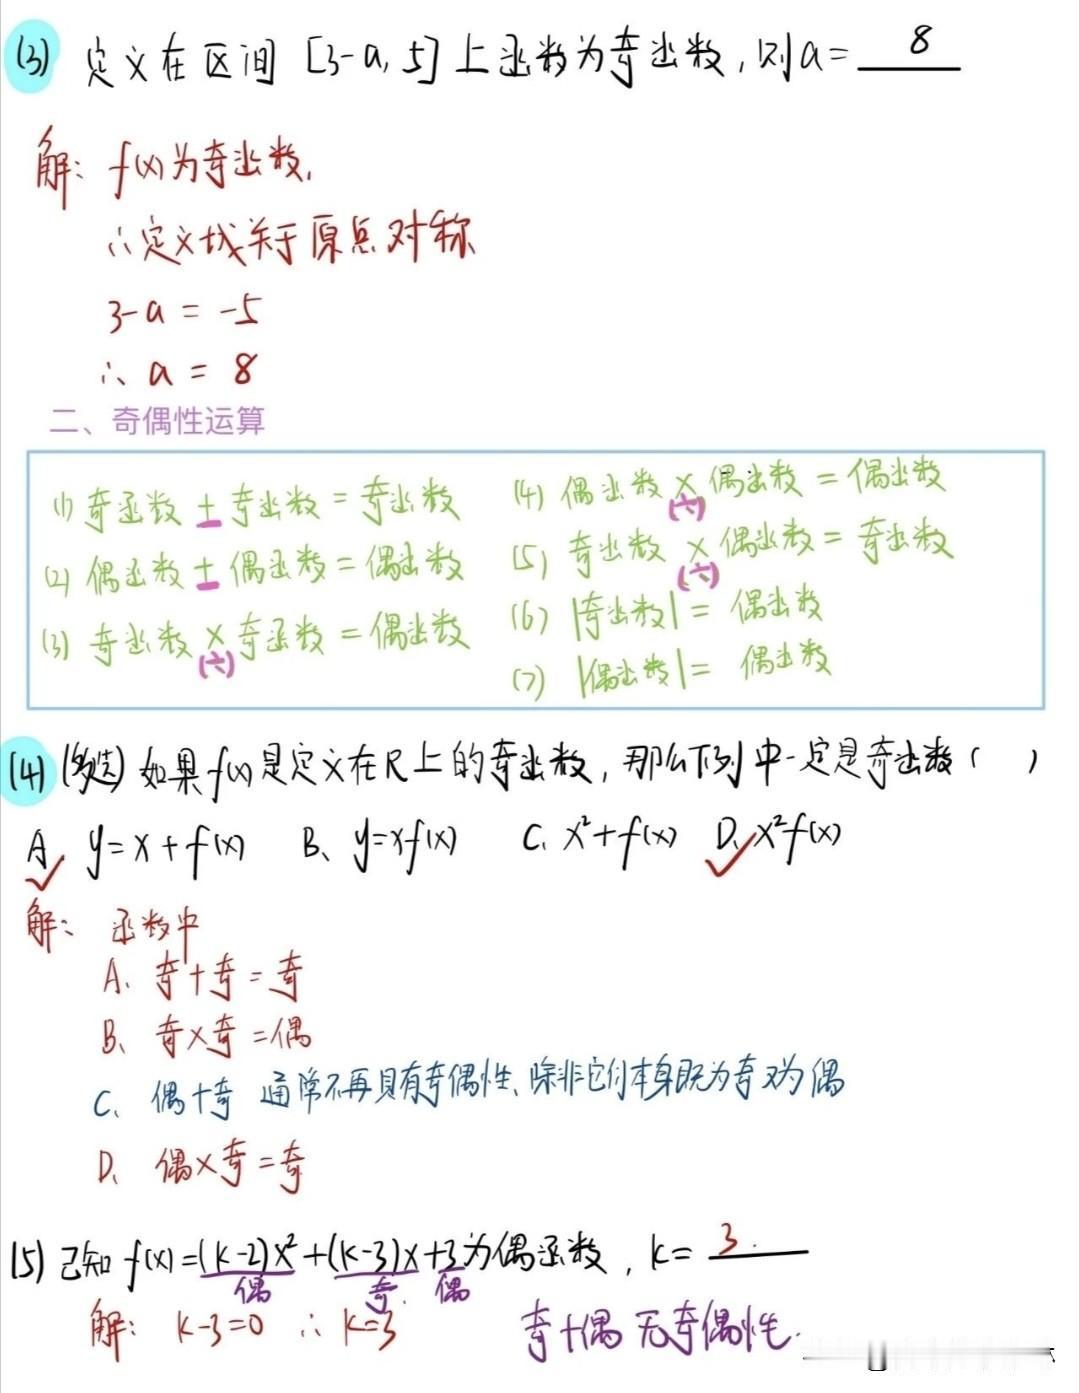 (3) 定义在区间 [3-a, 5] 上函数为奇函数, 则 a= 8
解: f(x)为奇函数,
∴定义域关于原点对称
3-a = -5
∴ a = 8
二、奇偶性运算
(1) 奇函数 ± 奇函数 = 奇函数
(2) 偶函数 ± 偶函数 = 偶函数
(3) 奇函数 × 奇函数 = 偶函数
(÷)
(4) 偶函数 × 偶函数 = 偶函数
(÷)
(5) 奇函数 × 偶函数 = 奇函数
(÷)
(6) |奇函数| = 偶函数
(7) |偶函数| = 偶函数
(4) (多选) 如果f(x)是定义在R上的奇函数, 那么下列中一定是奇函数 ( )
A、y=x+f(x) B、y=xf(x) C、x²+f(x) D、x²f(x)
解: 函数中
A、奇+奇=奇
B、奇×奇=偶
C、偶+奇 通常不再具有奇偶性、除非它们本身既为奇又为偶
D、偶×奇=奇
(5) 已知 f(x)=(k-2)x²+(k-3)x+3为偶函数, k= 3.
偶 奇. 偶
解: k-3=0 ∴ k=3 奇+偶 无奇偶性.